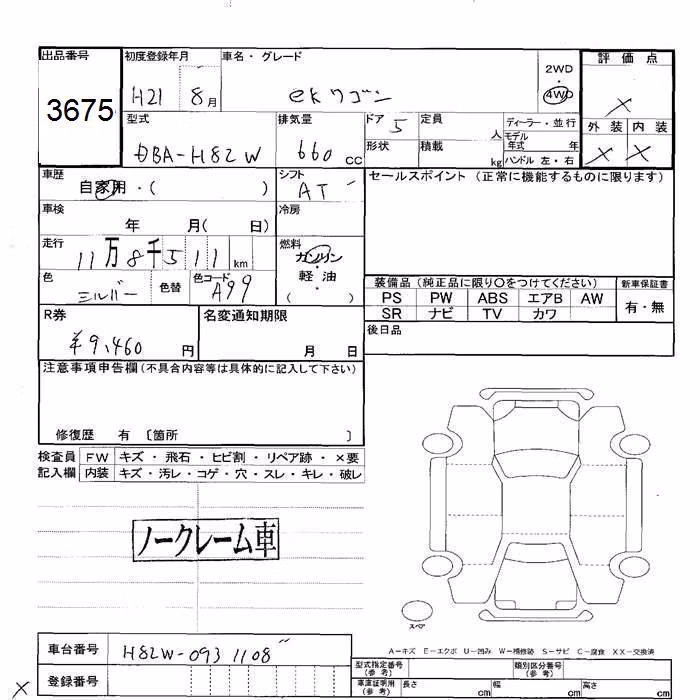 出品番号
3675
初度登録年月
H21 8月
車名・グレード
ekワゴン
2WD
・
4WD
評価点
×
外装 内装
× ×
型式
DBA-H82W
排気量
660 cc
ドア 5
形状
定員 人
積載 kg
ディーラー・並行
モデル年式 年
ハンドル 左・右
車歴
自家用・( )
シフト
AT
セールスポイント (正常に機能するものに限ります)
車検
年 月( 日)
冷房
走行
11万8千511km
燃料
ガソリン
・
軽油
( )
色
シルバー
色替
色コード
A99
装備品 (純正品に限り〇をつけてください)
PS PW ABS エアB AW
SR ナビ TV カワ
新車保証書
有・無
R券
¥9,460 円
名変通知期限
月 日
後日品
注意事項申告欄(不具合内容等は具体的に記入して下さい)
修復歴 有 〔箇所 〕
検査員 FW キズ・飛石・ヒビ割・リペア跡・×要
記入欄 内装 キズ・汚レ・コゲ・穴・スレ・キレ・破レ
ノークレーム車
スペア
A-キズ E-エクボ U-凹み W-補修跡 S-サビ C-腐食 XX-交換済
車台番号
H82W-0931108
登録番号
×
型式指定番号
(参考)
類別区分番号
(参考)
車庫証明用
(参考)
長さ cm 幅 cm 高さ cm